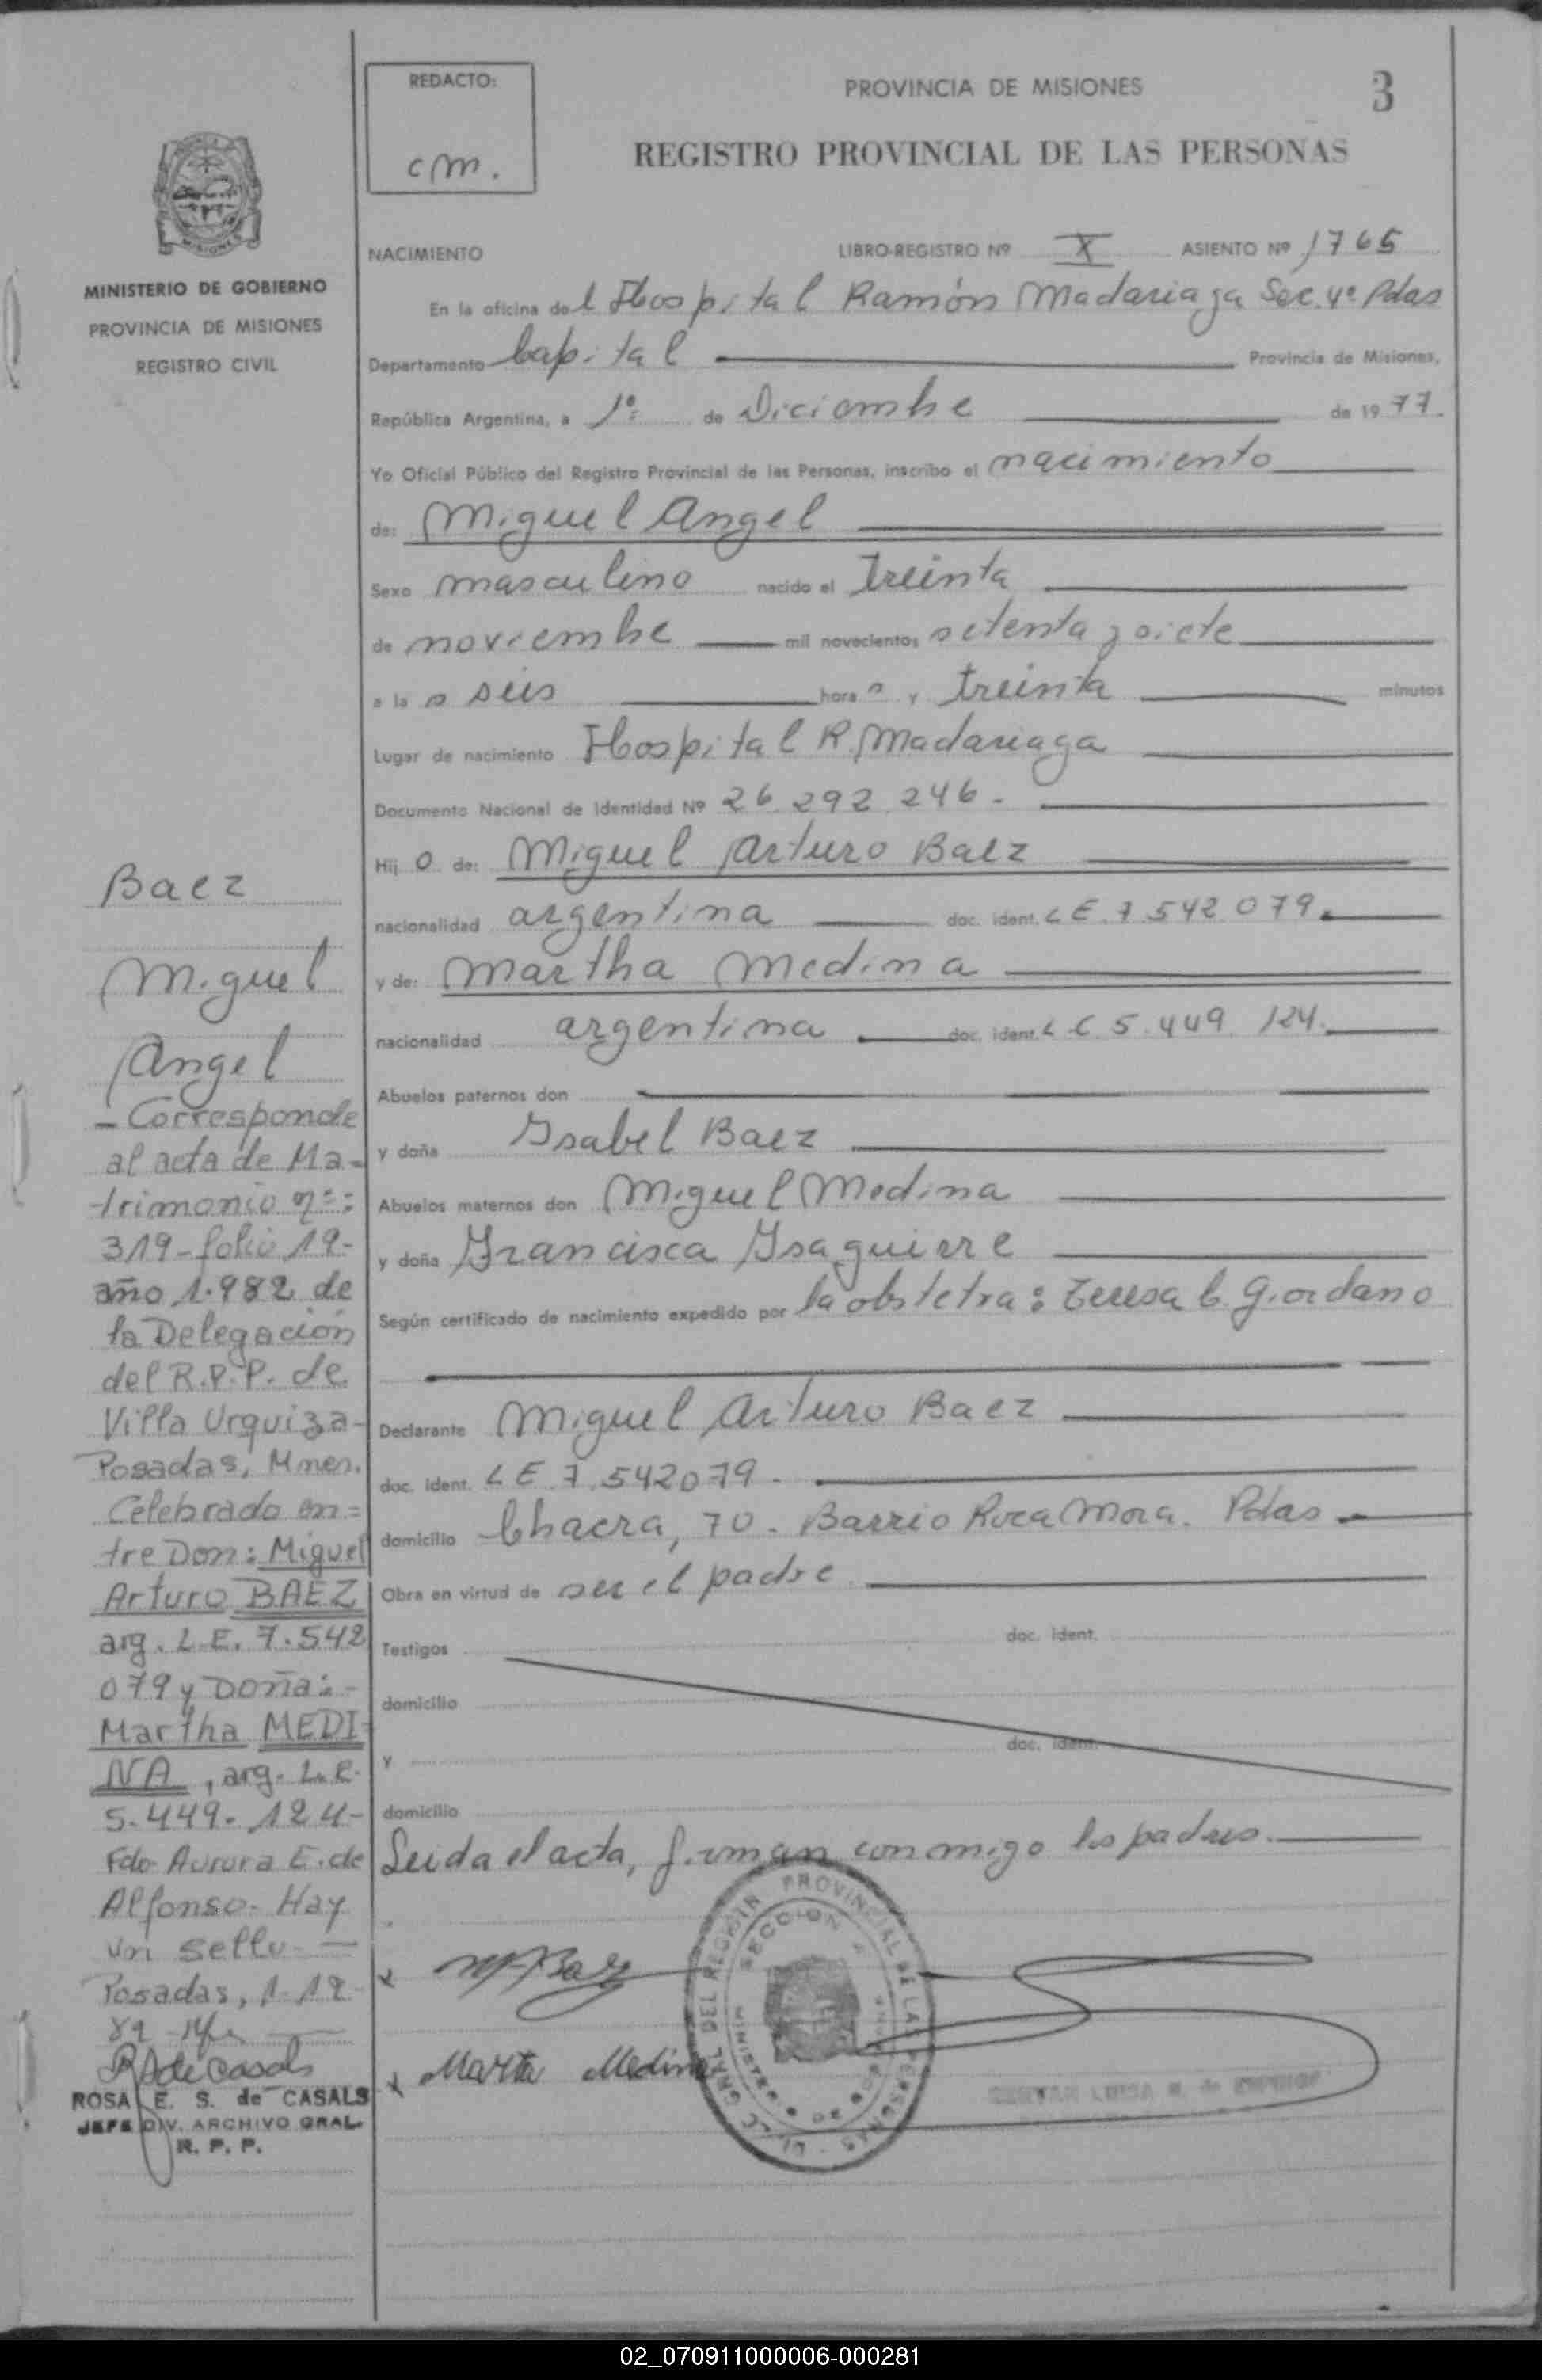 REDACTO:
cm.
PROVINCIA DE MISIONES
3
REGISTRO PROVINCIAL DE LAS PERSONAS
MISIONES
MINISTERIO DE GOBIERNO
PROVINCIA DE MISIONES
REGISTRO CIVIL
NACIMIENTO LIBRO-REGISTRO Nº X ASIENTO Nº 1765
En la oficina del Hospital Ramón Madariaga Sec. 4ª Pdas
Departamento Capital Provincia de Misiones,
República Argentina, a 1º de Diciembre de 1977.
Yo Oficial Público del Registro Provincial de las Personas, inscribo el nacimiento
de: Miguel Angel
Sexo masculino nacido el treinta
de noviembre mil novecientos setenta y siete
a las seis horas y treinta minutos
Lugar de nacimiento Hospital R. Madariaga
Documento Nacional de Identidad Nº 26.292.246.
Hijo de: Miguel Arturo Baez
nacionalidad argentina doc. ident. LE.7.542.079.
y de: Martha Medina
nacionalidad argentina doc. ident. LC 5.449.124.
Abuelos paternos don
y doña Isabel Baez
Abuelos maternos don Miguel Medina
y doña Francisca Isaguirre
Según certificado de nacimiento expedido por la obstetra: Teresa C. Giordano
Declarante Miguel Arturo Baez
doc. ident. LE.7.542079.
domicilio Chacra, 70. Barrio Roca Mora. Pdas
Obra en virtud de ser el padre
Testigos doc. ident.
domicilio
y doc. ident.
domicilio
Leida el acta, firman conmigo los padres.
x M A Baez
x Marta Medina
Baez
Miguel
Angel
- Corresponde
al acta de Ma-
trimonio nº:
319-folio 19-
año 1.982 de
la Delegación
del R.P.P. de
Villa Urquiza-
Posadas, Mnes.
Celebrado en=
tre Don: Miguel
Arturo BAEZ
arg. L.E. 7.542
079 y Doña:-
Martha MEDI=
NA, arg. L.C.
5.449.124-
Fdo Aurora E. de
Alfonso. Hay
un sello-
Posadas, 1-12
82
ROSA E. S. de CASALS
JEFE DIV. ARCHIVO GRAL.
R. P. P.
02_070911000006-000281